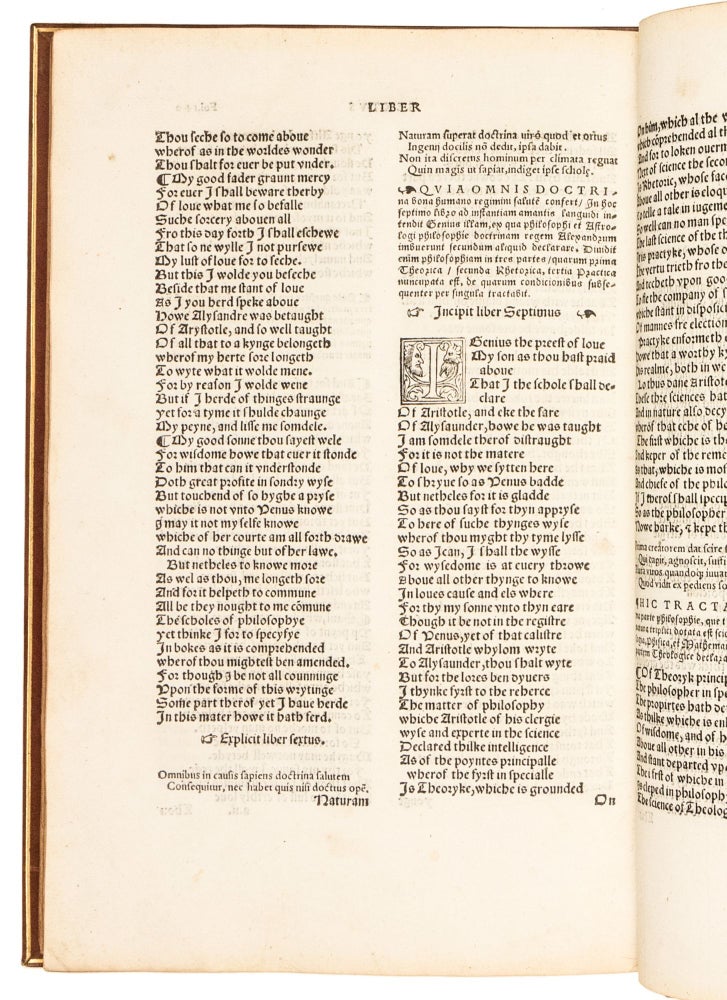 LIBER
Thou seche so to come aboue
wherof as in the worldes wonder
Thou shalt for euer be put vnder.
¶ My good fader graunt mercy
For euer I shall beware therby
Of loue what me so befalle
Suche sorcery abouen all
Fro this day forth I shall eschewe
That so ne wylle I not pursewe
My lust of loue for to seche.
But this I wolde you beseche
Beside that me stant of loue
As I you herd speke aboue
Howe Alysandre was betaught
Of Arystotle, and so well taught
Of all that to a kynge belongeth
wherof my herte sore longeth
To wyte what it wolde mene.
For by reason I wolde wene
But if I herde of thinges straunge
yet for a tyme it shulde chaunge
My peyne, and lisse me somdele.
¶ My good sonne thou sayest wele
For wisdome howe that euer it stonde
To him that can it vnderstonde
Doth great profite in sondry wyse
But touchend of so hyghe a pryse
whiche is not vnto Venus knowe
I may it not my selfe knowe
whiche of her courte am all forth drawe
And can no thinge but of her lawe.
But netheles to knowe more
As wel as thou, me longeth sore
And for it helpeth to commune
All be they nought to me cōmune
The scholes of philosophye
yet thinke I for to specyfye
In bokes as it is comprehended
wherof thou mightest ben amended.
For though I be not all counninge
Vpon the forme of this wrytinge
Some part therof yet I haue herde
In this mater howe it hath ferd.
☞ Explicit liber sextus.
Omnibus in causis sapiens doctrina salutem
Consequitur, nec habet quis nisi doctus opē.
Naturam
Naturam superat doctrina uiro quod et ortus
Ingenij docilis nō dedit, ipsa dabit.
Non ita discretus hominum per climata regnat
Quin magis ut sapiat, indiget ipse scholę.
QVIA OMNIS DOCTRI-
na bona humano regimini salutē confert/ In hoc
septimo libro ad instantiam amantis languidi in-
tendit Genius illam, ex qua philosophi et Astro-
logi philosophie doctrinam regem Alexandrum
imbuerunt secundum aliquid declarare. Diuidit
enim philosophiam in tres partes/ quarum prima
Theorica / secunda Rhetorica, tertia Practica
nuncupata est, de quarum condicionibus subse-
quenter per singula tractabit.
☞ Incipit liber Septimus
I Genius the preest of loue
My son as thou hast praid
aboue
That I the schole shall de-
clare
Of Aristotle, and eke the fare
Of Alysaunder, howe he was taught
I am somdele therof distraught
For it is not the matere
Of loue, why we sytten here
To shryue so as Venus badde
But netheles for it is gladde
So as thou sayst for thyn appryse
To here of suche thynges wyse
wherof thou myght thy tyme lysse
So as I can, I shall the wysse
For wysedome is at euery throwe
Aboue all other thynge to knowe
In loues cause and els where
For thy my sonne vnto thyn eare
Though it be not in the registre
Of Venus, yet of that calistre
And Aristotle whylom wryte
To Alysaunder, thou shalt wyte
But for the lores ben dyuers
I thynke fyrst to the reherce
The matter of philosophy
whiche Aristotle of his clergie
wyse and experte in the science
Declared thilke intelligence
As of the poyntes principalle
wherof the fyrst in specialle
Is Theoryke, whiche is grounded
On
On him, which al the
which cōprehended al
And for to loken ouerm
Next of science the seco
Is Rhetoric, whose face
Aboue all other is eloq
To telle a tale in iugeme
So well can no man spe
The last science of the th
It is practyke, whose o
The vertu trieth fro the
And techeth vpon goo
So fle the company of s
whiche stant in disposici
Of mannes fre election
Practyke enformeth e
Howe that a worthy ky
His realme, both in we
Lo thus dane Aristotle
These thre sciences hat
And in nature also decy
wherof that eche of he
The first whiche is th
And keper of the reme
As that, whiche is mos
And chiefe of the philo
If I therof shall specifi
So as the philosopher
Nowe harke, & kepe th
Prima creatorem dat scire
Qui capit, agnoscit, suffi
Plura viros quandoq; iuuat
Quod vidit expediens so
¶HIC TRACTA
prima parte philosophie, que
natura triplici dotata est sci
logia, phisica, et Mathemat
partem Theologice declara
¶ Of Theoryk princip
The philosopher in spe
The propirtes hath de
As thilke whiche is enl
Of wisdome, and of h
Aboue all other in his
And stant departed vp
The first of whiche in
Is cleped in philosoph
The science of Theolog